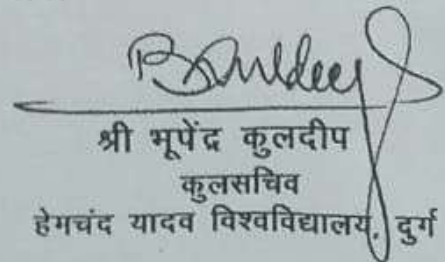 श्री भूपेंद्र कुलदीप
कुलसचिव
हेमचंद यादव विश्वविद्यालय, दुर्ग